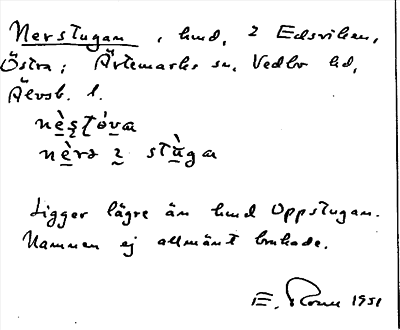 Nerstugan, hmd, 2 Edsviken,
Östra; Ärtemarks sn, Vedbo hd,
Älvsb. l.
nèʂt́ova
nèrə 2 stùga
Ligger lägre än hmd Uppstugan.
Namnen ej allmänt brukade.
E. 1951